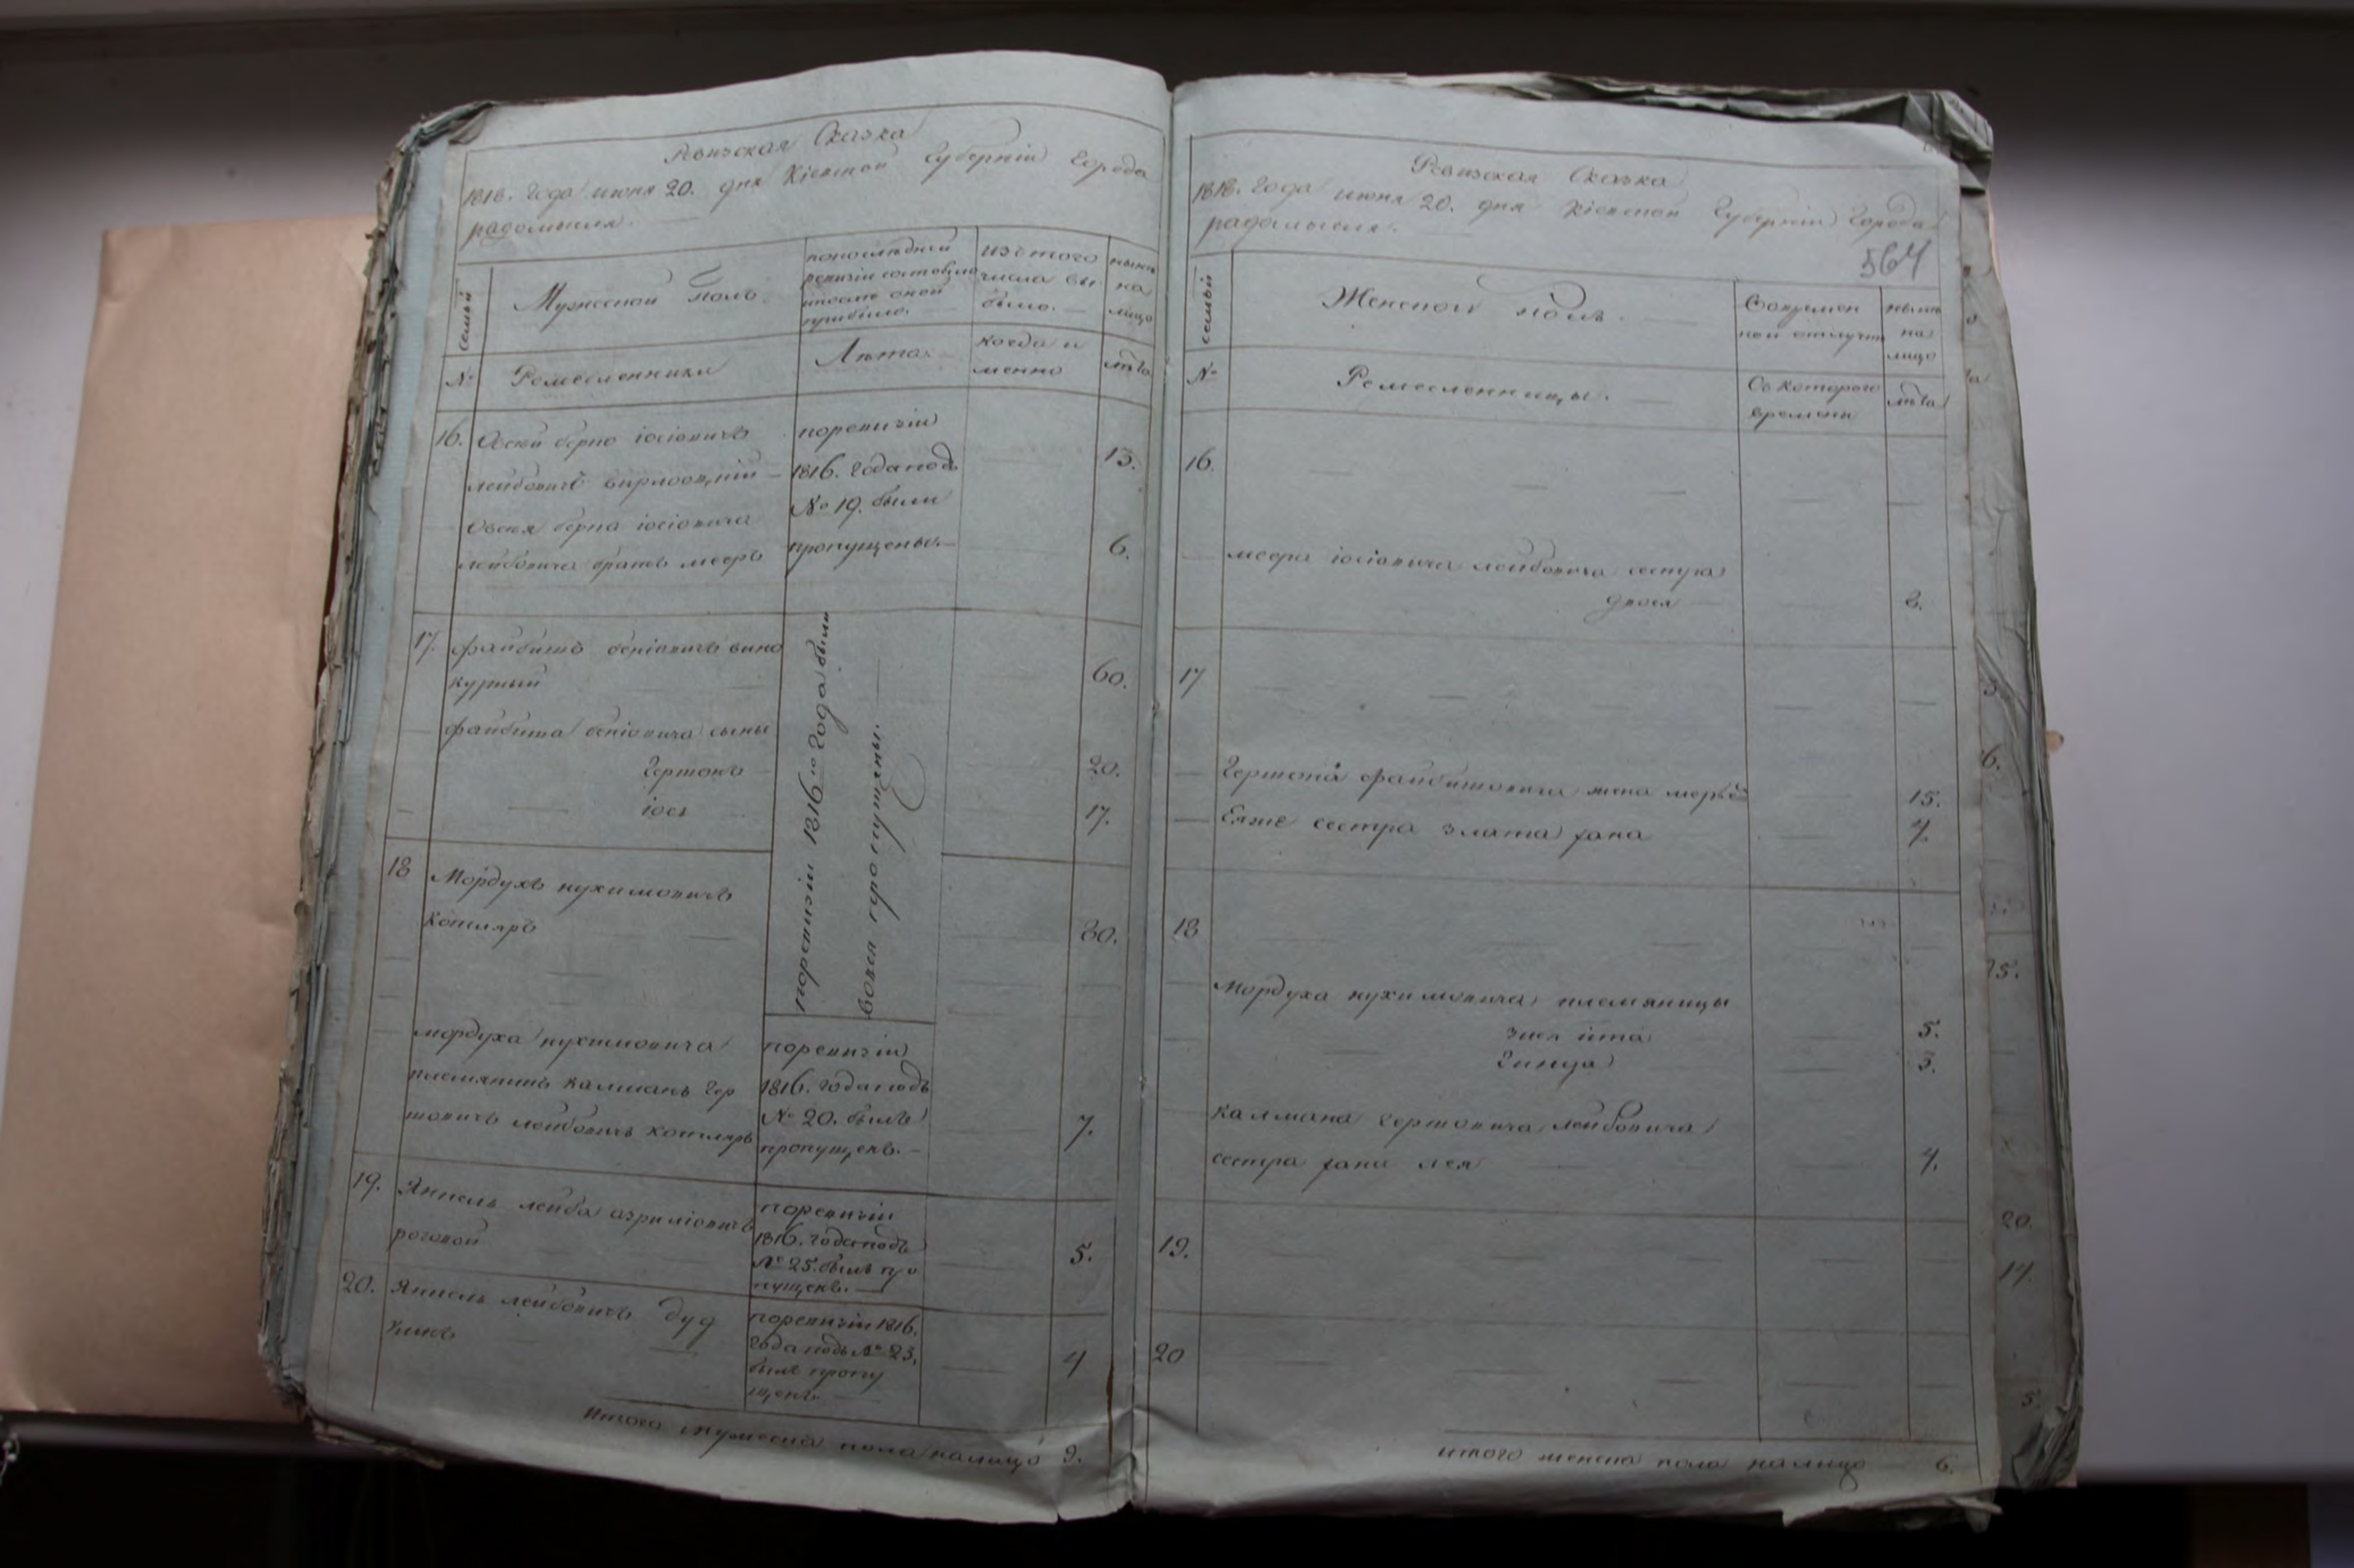 Ревизская Сказка
1818. Года июня 20. дня Кіевской Губерніи Города
радомысля.
семьи
Мужеской полъ.
попоследней
ревизіи состояло
ипосле оной
прибыло.
изътого
числа вы
было.
ныне
на
лицо
№
Ремесленники
Лета.
когда и
менно
лета
16. Овсей берко іосіовичъ
лейбовичъ
Овсея берка іосіовича
лейбовича братъ мееръ
поревизіи
1816. Года подъ
№ 19. были
пропущены.
13.
6.
17. файбишъ беніовичъ вино
курный
60.
файбиша беніовича сыны
Гершонъ
20.
іось
17.
поревизіи 1816го Года были
вовся пропущены.
18 Мордухъ нухимовичъ
котляръ
30.
мордуха нухимовича
племянникъ калманъ гер
шовичъ лейбовичъ котляръ
поревизіи
1816. года подъ
№ 20. былъ
пропущенъ.
7.
19. Янкель лейба азриліовичъ
роговой
поревизіи
1816. года подъ
№ 25. былъ про
пущенъ.
5.
20. Янкель лейбовичъ дуд
никъ
поревизіи 1816.
года подъ № 23.
былъ пропу
щенъ
4
Итого мужеска пола налицо 9.
Ревизская Сказка
1818. Года июня 20. дня Кіевской Губерніи Города
радомысля.
564
семьи
Женской полъ.
Вовремен
ной отлучке
ныне
на
лицо
№
Ремесленницы.
Съ котораго
времени
лета
16.
меера іосіовича лейбовича сестра
двося
17
Гершона файбишовича жена
15.
Еяже сестра злата хана
7.
18
Мордуха нухимовича племяницы
5.
Гинда
3.
калмана Гершовича лейбовича
сестра хана лея
4.
19.
20
итого женска пола налицо 6.